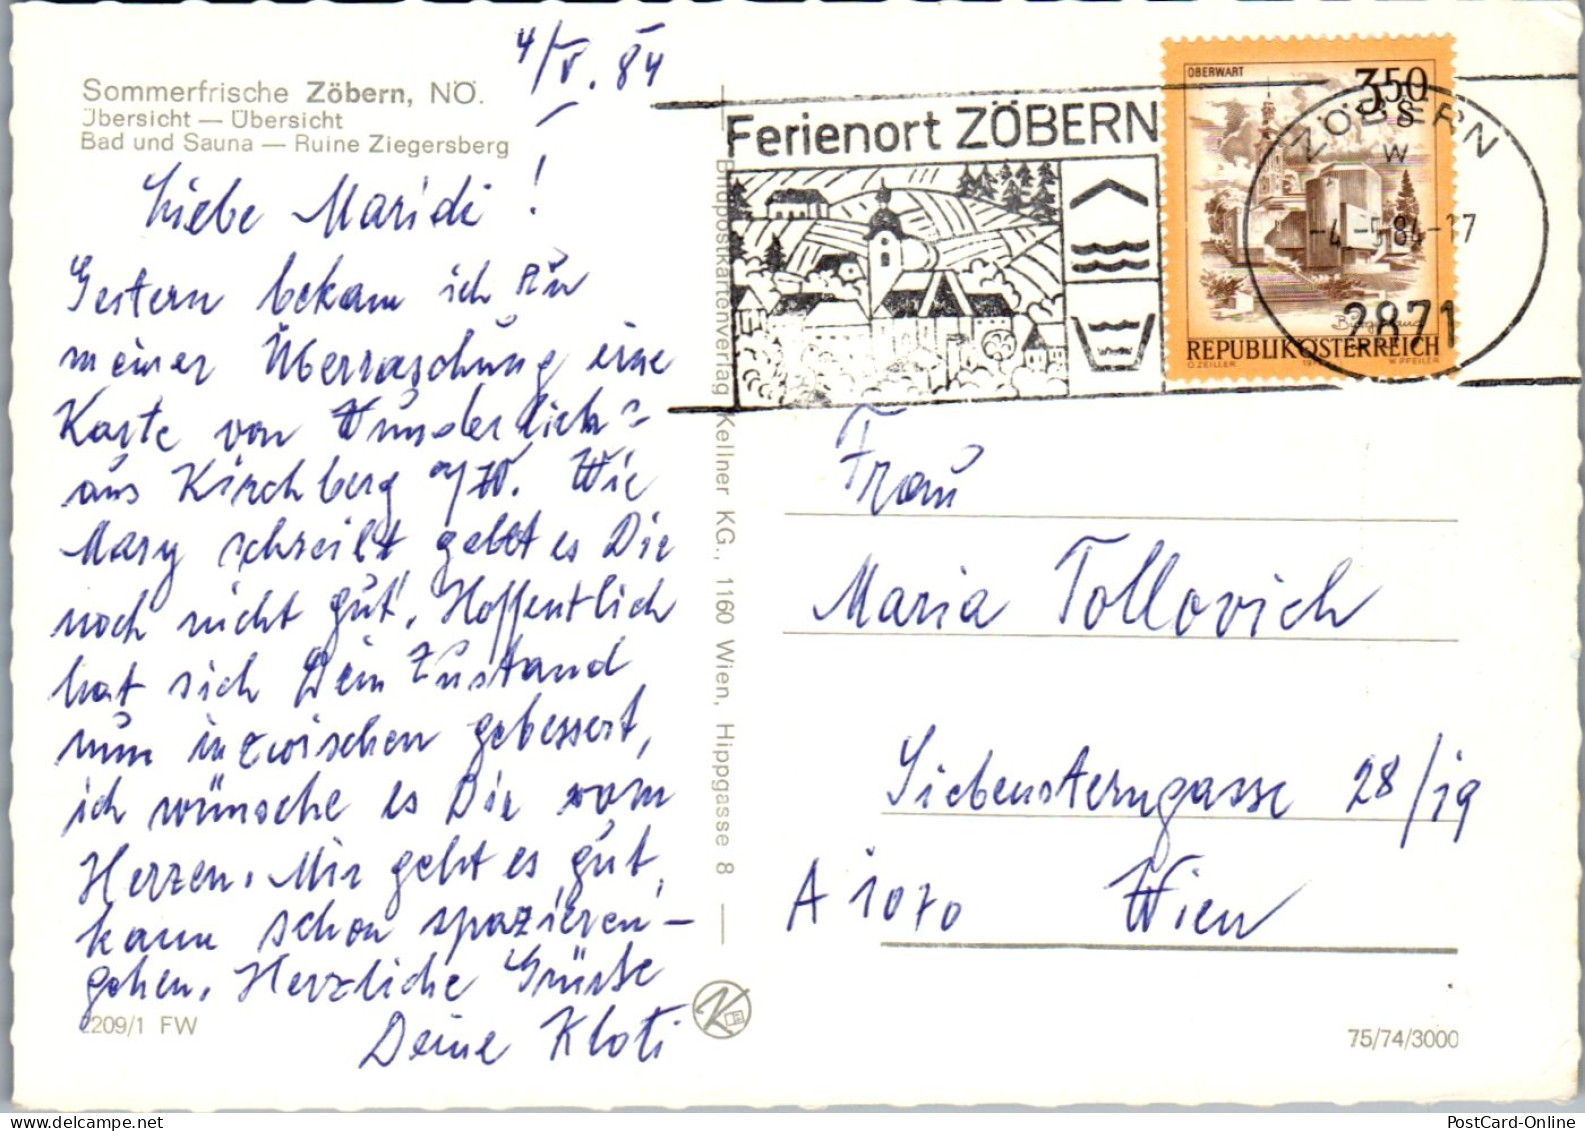 Sommerfrische Zöbern, NÖ.
Übersicht — Übersicht
Bad und Sauna — Ruine Ziegersberg
4/V. 84
Liebe Maridi!
Gestern bekam ich zu
meiner Überraschung eine
Karte von Wunderlich's
aus Kirchberg a/W. Wie
Mary schreibt geht es Dir
noch nicht gut. Hoffentlich
hat sich Dein Zustand
nun inzwischen gebessert,
ich wünsche es Dir vom
Herzen. Mir geht es gut,
kann schon spazieren-
gehen. Herzliche Grüsse
Deine Kloti
2209/1 FW
Bildpostkartenverlag Kellner KG., 1160 Wien, Hippgasse 8
K
Ferienort ZÖBERN
OBERWART
3.50
S
Burgenland
REPUBLIK ÖSTERREICH
O. ZEILER
W. PFEILER
ZÖBERN
w
-4.-5.84-17
2871
Frau
Maria Tollovich
Siebensterngasse 28/19
A 1070 Wien
75/74/3000
PostCard-Online